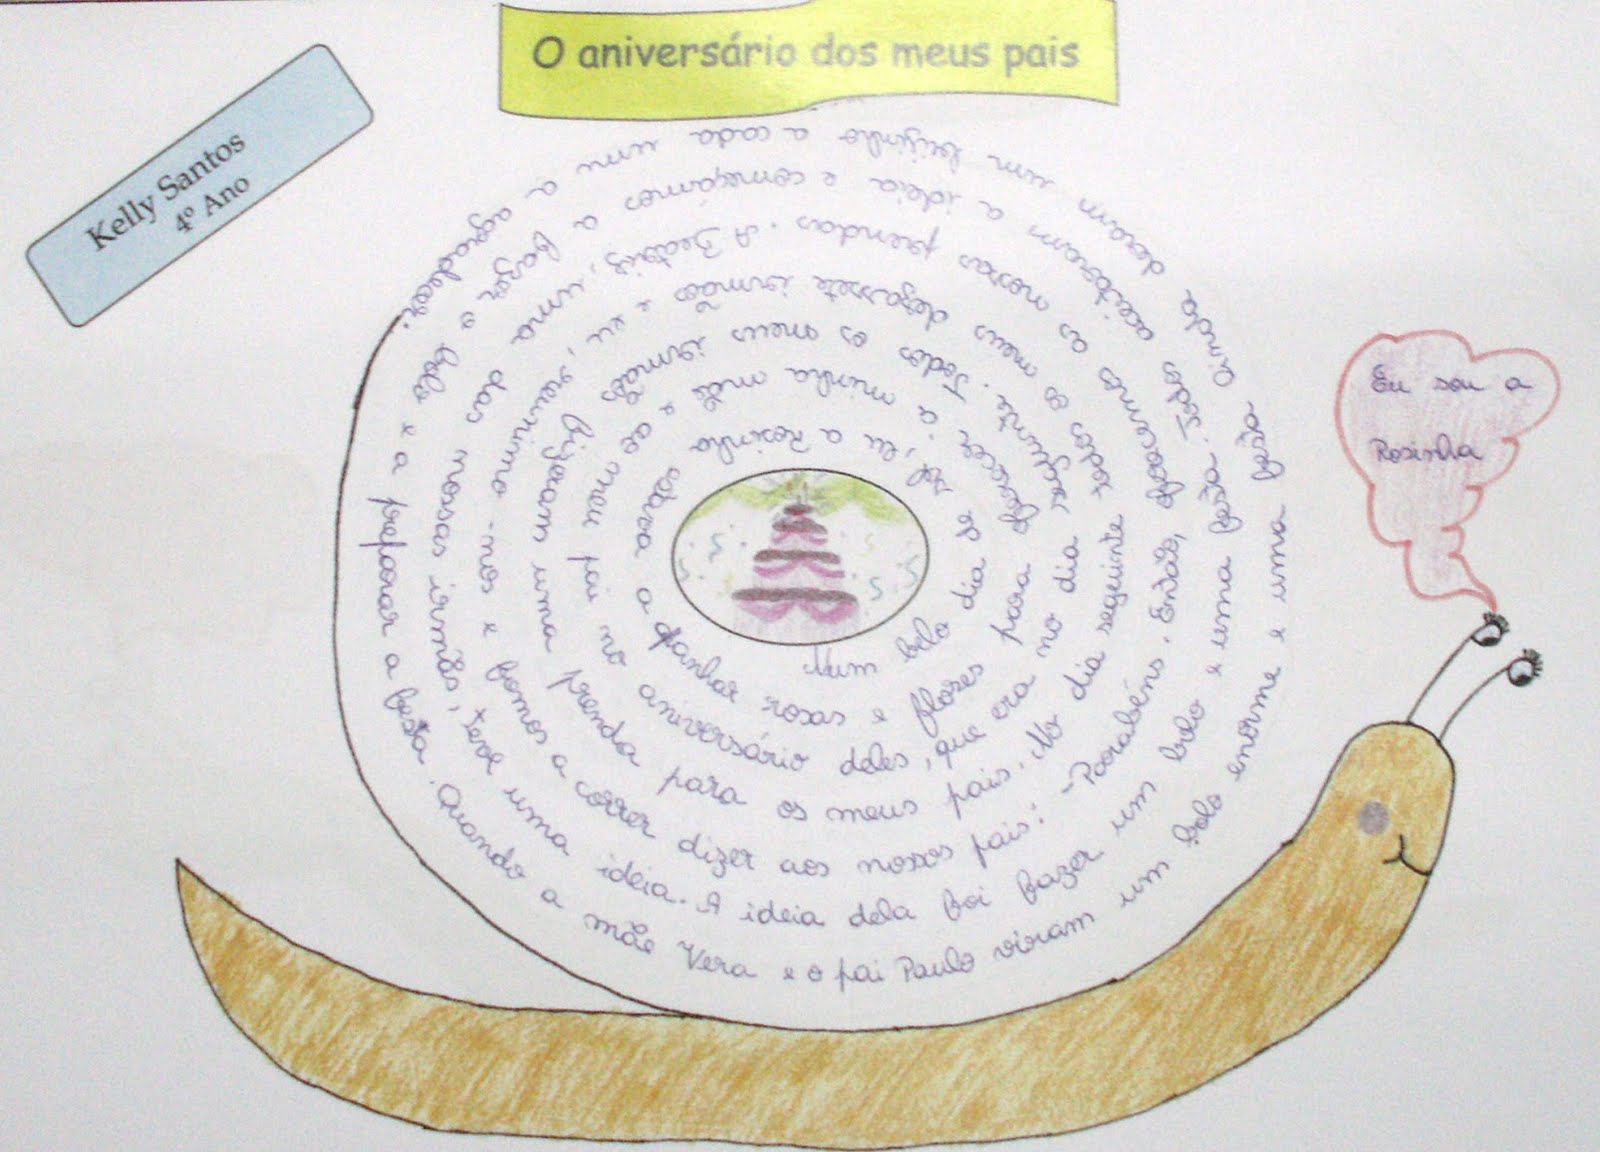 O aniversário dos meus pais
Kelly Santos
4º Ano
Num belo dia de sol, eu a Rosinha estava a apanhar rosas e flores para oferecer à minha mãe e ao meu pai no aniversário deles, que era no dia seguinte. Todos os meus irmãos fizeam uma prenda para os meus pais. No dia seguinte todos os meus dezassete irmãos e eu, reunimo-nos e fomos a correr dizer aos nossos pais: -Parabéns. Então, oferecemos as nossas prendas. A Beatriz, uma das nossas irmãs, teve uma ideia. A ideia dela foi fazer um bolo e uma festa. Todos aceitaram a ideia e começámos a fazer o bolo e a preparar a festa. Quando a mãe Vera e o pai Paulo viram um bolo enorme e uma ainda deram um beijinho a cada um a agradecer.
Eu sou a
Rosinha